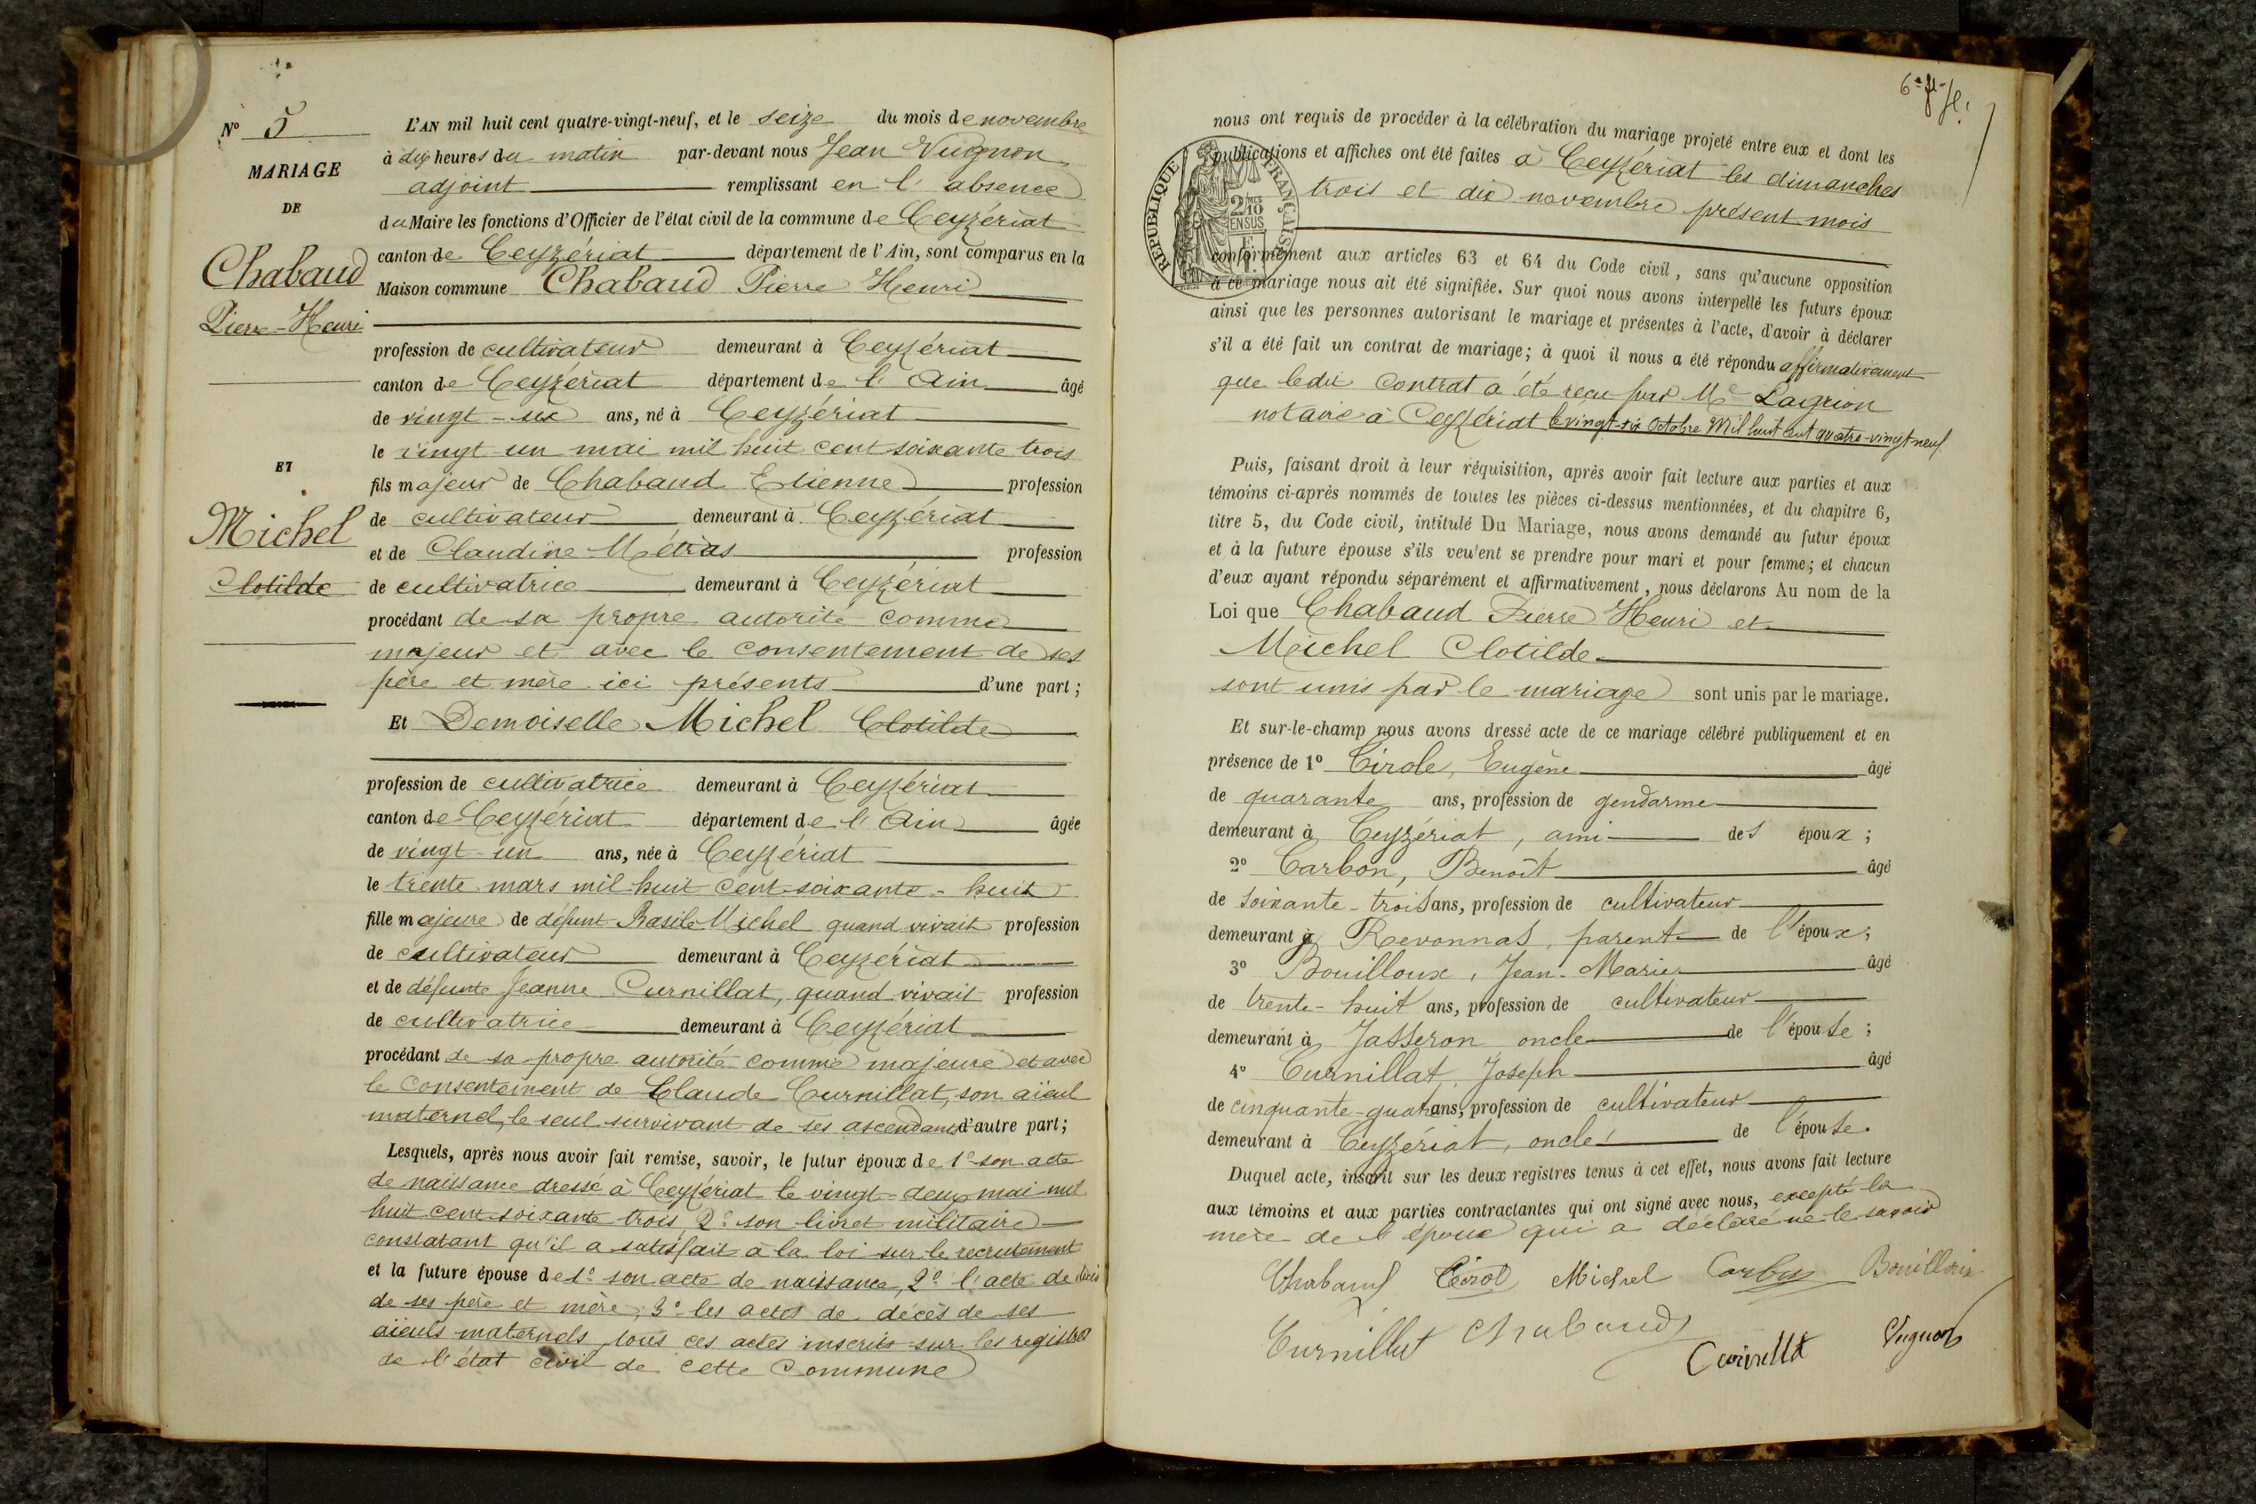 N° 5
MARIAGE
DE
Chabaud
Pierre-Henri
ET
Michel
Clotilde
L'AN mil huit cent quatre-vingt-neuf, et le seize du mois de novembre
à dix heures du matin par-devant nous Jean Vugnon
adjoint remplissant en l'absence
du Maire les fonctions d'Officier de l'état civil de la commune de Ceyzériat
canton de Ceyzériat département de l'Ain, sont comparus en la
Maison commune Chabaud Pierre Henri
profession de cultivateur demeurant à Ceyzériat
canton de Ceyzériat département de l'Ain âgé
de vingt-six ans, né à Ceyzériat
le vingt un mai mil huit cent soixante trois
fils majeur de Chabaud Etienne profession
de cultivateur demeurant à Ceyzériat
et de Claudine Métras profession
de cultivatrice demeurant à Ceyzériat
procédant de sa propre autorité comme
majeur et avec le consentement de ses
père et mère ici présents d'une part;
Et Demoiselle Michel Clotilde
profession de cultivatrice demeurant à Ceyzériat
canton de Ceyzériat département de l'Ain âgée
de vingt-un ans, née à Ceyzériat
le trente mars mil huit cent soixante-huit
fille majeure de défunt Basile Michel quand vivait profession
de cultivateur demeurant à Ceyzériat
et de défunte Jeanne Curnillat, quand vivait profession
de cultivatrice demeurant à Ceyzériat
procédant de sa propre autorité comme majeure et avec
le consentement de Claude Curnillat, son aïeul
maternel, le seul survivant de ses ascendants d'autre part;
Lesquels, après nous avoir fait remise, savoir, le futur époux de 1° son acte
de naissance dressé à Ceyzériat le vingt-deux mai mil
huit cent soixante trois, 2° son livret militaire
constatant qu'il a satisfait à la loi sur le recrutement
et la future épouse de 1° son acte de naissance, 2° l'acte de décès
de ses père et mère, 3° les actes de décès de ses
aïeuls maternels, tous ces actes inscrits sur les registres
de l'état civil de cette Commune
nous ont requis de procéder à la célébration du mariage projeté entre eux et dont les
publications et affiches ont été faites à Ceyzériat les dimanches
trois et dix novembre présent mois
RÉPUBLIQUE FRANÇAISE
conformément aux articles 63 et 64 du Code civil, sans qu'aucune opposition
à ce mariage nous ait été signifiée. Sur quoi nous avons interpellé les futurs époux
ainsi que les personnes autorisant le mariage et présentes à l'acte, d'avoir à déclarer
s'il a été fait un contrat de mariage; à quoi il nous a été répondu affirmativement
que ledit Contrat a été reçu par Me Lagrion
notaire à Ceyzériat le vingt-six Octobre Mil huit cent quatre-vingt-neuf
Puis, faisant droit à leur réquisition, après avoir fait lecture aux parties et aux
témoins ci-après nommés de toutes les pièces ci-dessus mentionnées, et du chapitre 6,
titre 5, du Code civil, intitulé Du Mariage, nous avons demandé au futur époux
et à la future épouse s'ils veulent se prendre pour mari et pour femme; et chacun
d'eux ayant répondu séparément et affirmativement, nous déclarons Au nom de la
Loi que Chabaud Pierre Henri et
Michel Clotilde
sont unis par le mariage sont unis par le mariage.
Et sur-le-champ nous avons dressé acte de ce mariage célébré publiquement et en
présence de 1° Cirole, Eugène âgé
de quarante ans, profession de gendarme
demeurant à Ceyzériat, ami des époux;
2° Carbon, Benoît âgé
de soixante-trois ans, profession de cultivateur
demeurant à Revonnas, parent de l'époux;
3° Bouilloux, Jean-Marie âgé
de trente-huit ans, profession de cultivateur
demeurant à Jasseron oncle de l'épouse;
4° Curnillat, Joseph âgé
de cinquante-quatre ans, profession de cultivateur
demeurant à Ceyzériat, oncle de l'épouse.
Duquel acte, inscrit sur les deux registres tenus à cet effet, nous avons fait lecture
aux témoins et aux parties contractantes qui ont signé avec nous, excepté la
mère de l'époux qui a déclaré ne le savoir
Chabaud Cirol Michel Carbon Bouilloux
Curnillat Chabaud Curnillat Vugnon